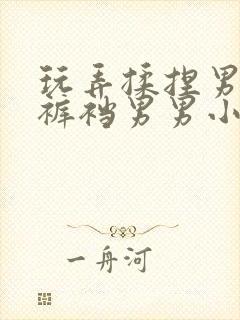 玩弄揉捏男
裤裆男男小
一舟河